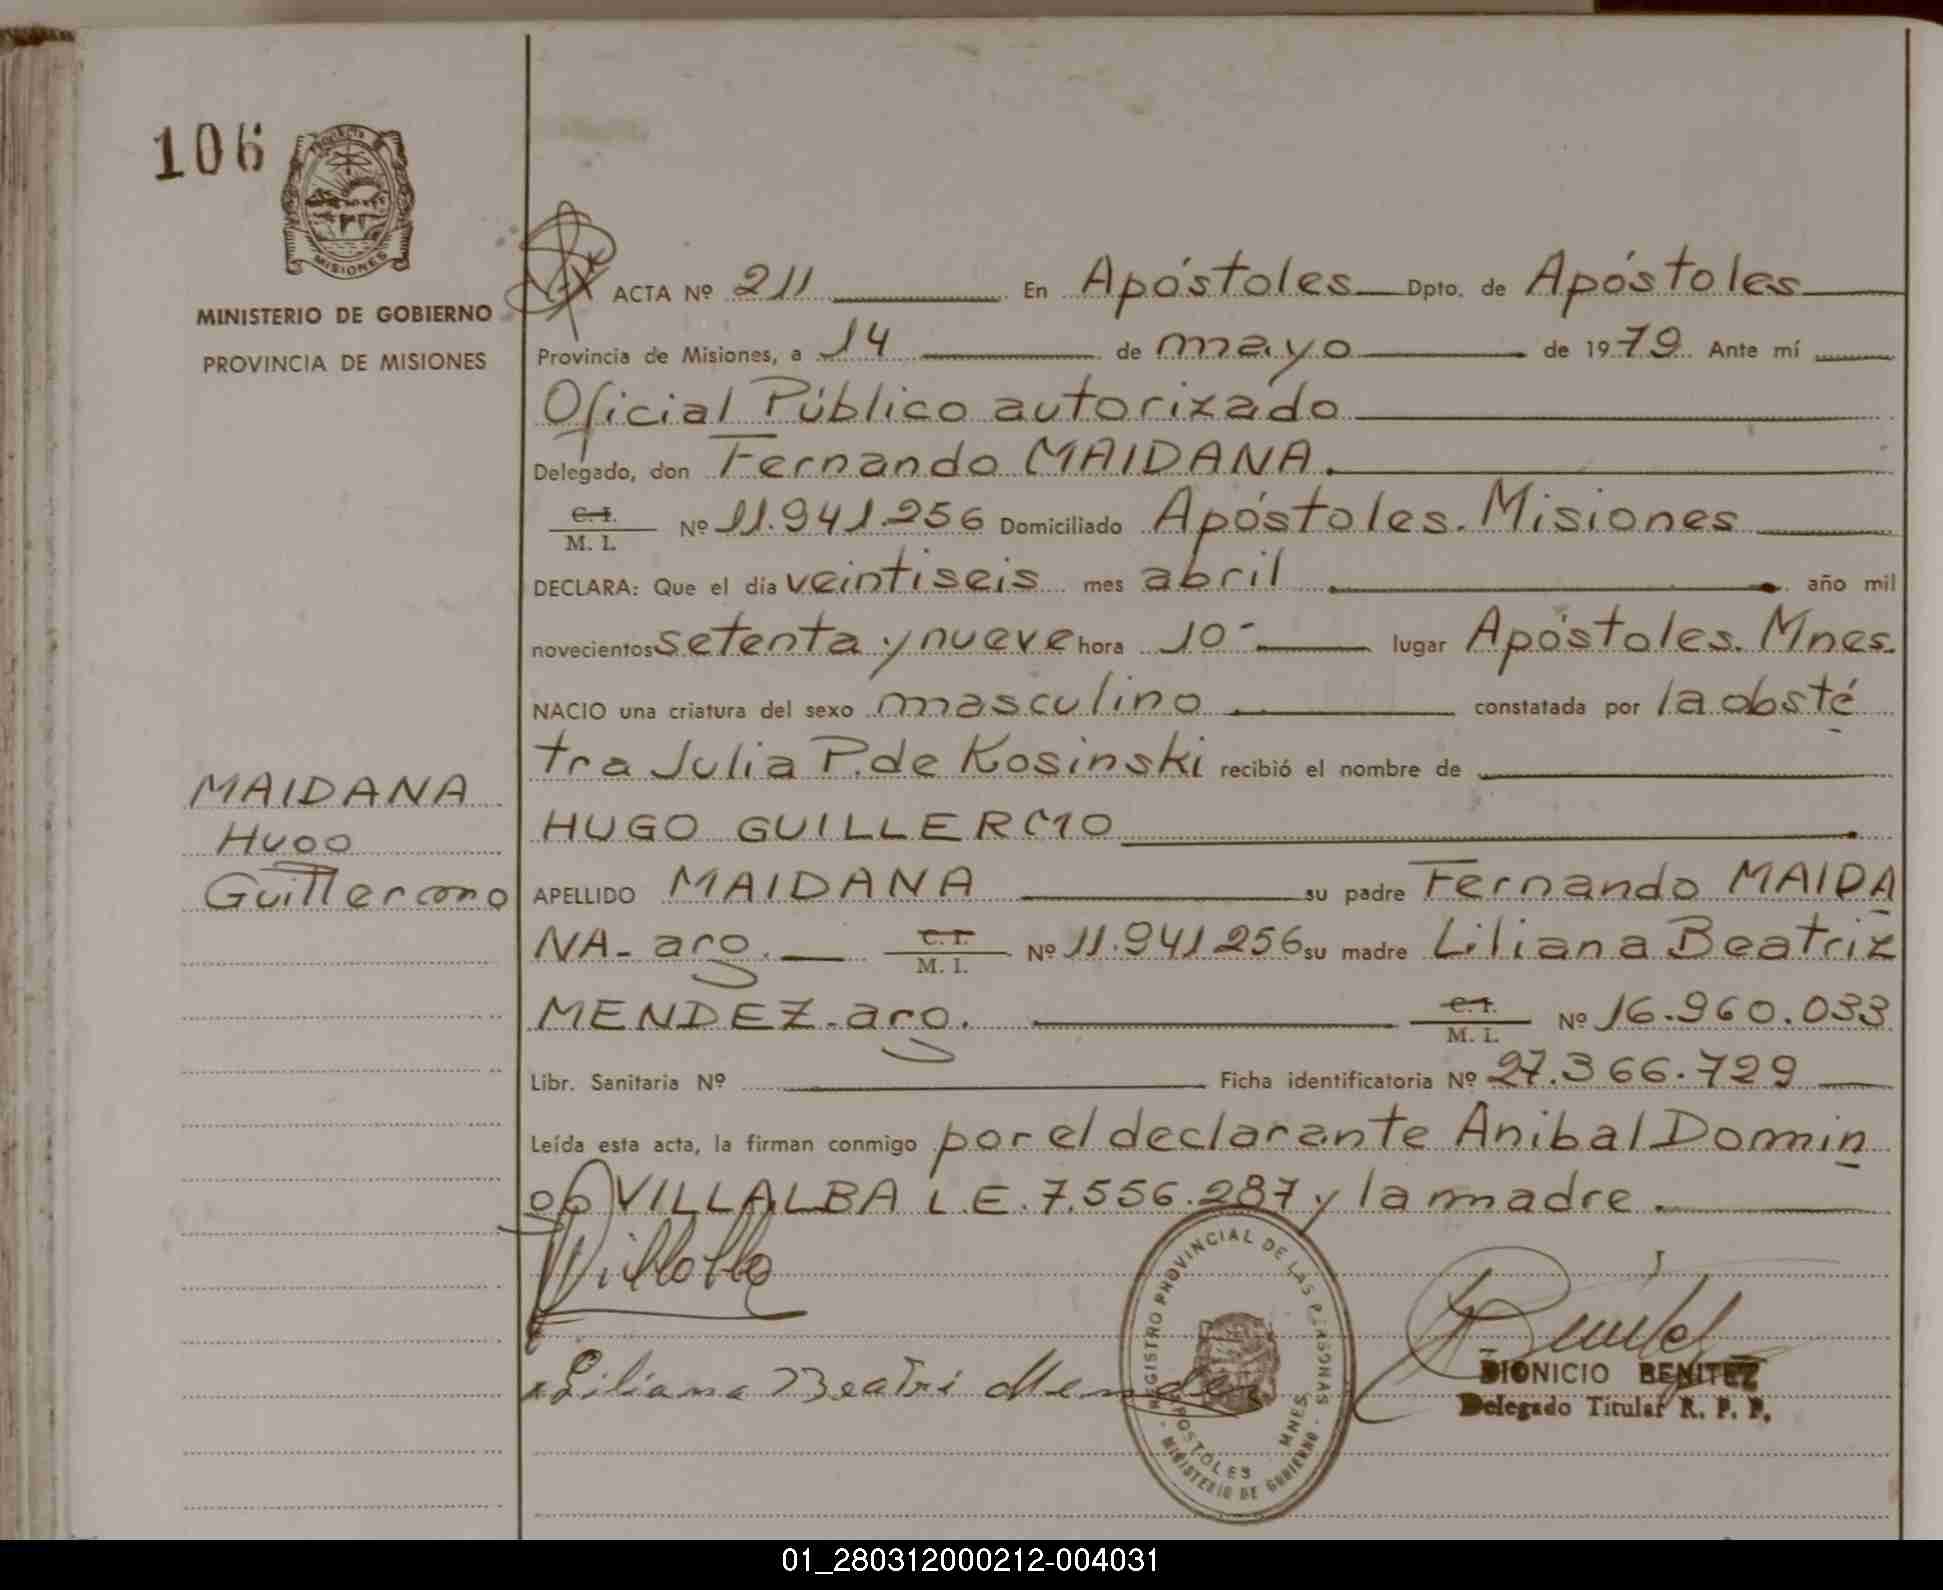 106
MISIONES
MINISTERIO DE GOBIERNO
PROVINCIA DE MISIONES
MAIDANA
Hugo
Guillermo
ACTA Nº 211 En Apóstoles Dpto. de Apóstoles
Provincia de Misiones, a 14 de mayo de 1979 Ante mí
Oficial Público autorizado
Delegado, don Fernando MAIDANA.
C. I.
M. I. Nº 11.941.256 Domiciliado Apóstoles. Misiones
DECLARA: Que el día veintiseis mes abril año mil
novecientos setenta y nueve hora 10- lugar Apóstoles. Mnes.
NACIO una criatura del sexo masculino constatada por la obsté
tra Julia P. de Kosinski recibió el nombre de
HUGO GUILLERMO
APELLIDO MAIDANA su padre Fernando MAIDA
NA- arg. C. I. M. I. Nº 11.941.256 su madre Liliana Beatriz
MENDEZ-arg. C. I. M. I. Nº 16.960.033
Libr. Sanitaria Nº Ficha identificatoria Nº 27.366.729
Leída esta acta, la firman conmigo por el declarante Anibal Domin
go VILLALBA L.E. 7.556.287 y la madre.
Villalba
Liliana Beatri Mendez
REGISTRO PROVINCIAL DE LAS PERSONAS
APOSTOLES MNES.
MINISTERIO DE GOBIERNO
DIONICIO BENITEZ
Delegado Titular R. P. P.
01_280312000212-004031